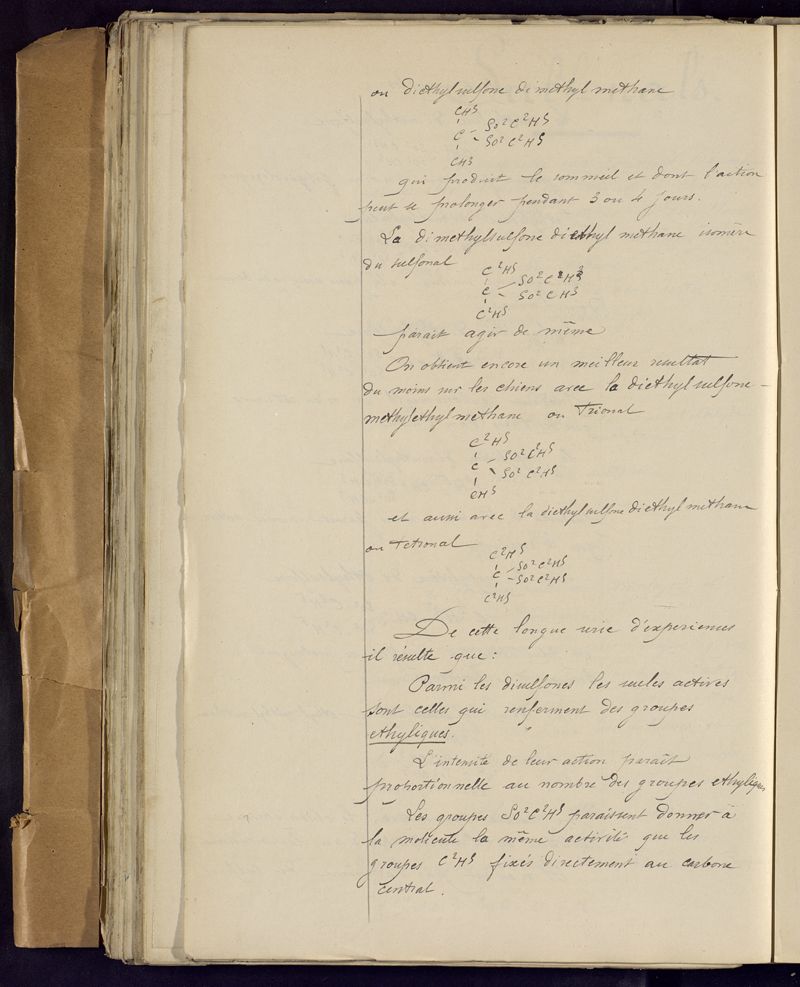 ou diethylsulfone dimethyl methane
CH³
C - SO²C²H⁵
- SO²C²H⁵
CH³
qui produit le sommeil et dont l'action
peut se prolonger pendant 3 ou 4 jours.
La dimethylsulfone diethyl methane isomère
du sulfonal
C²H⁵
C - SO²CH³
- SO²CH³
C²H⁵
parait agir de même
On obtient encore un meilleur resultat
du moins sur les chiens avec la diethylsulfone-
methylethyl methane ou Trional
C²H⁵
C - SO²C²H⁵
- SO²C²H⁵
CH³
et aussi avec la diethylsulfone diethyl methane
ou Tetronal
C²H⁵
C - SO²C²H⁵
- SO²C²H⁵
C²H⁵
De cette longue serie d'experiences
il résulte que :
Parmi les disulfones les seules actives
sont celles qui renferment des groupes
ethyliques.
L'intensité de leur action paraît
proportionnelle au nombre des groupes ethyliques
Les groupes SO²C²H⁵ paraissent donner à
la molécule la même activité que les
groupes C²H⁵ fixés directement au carbone
central.